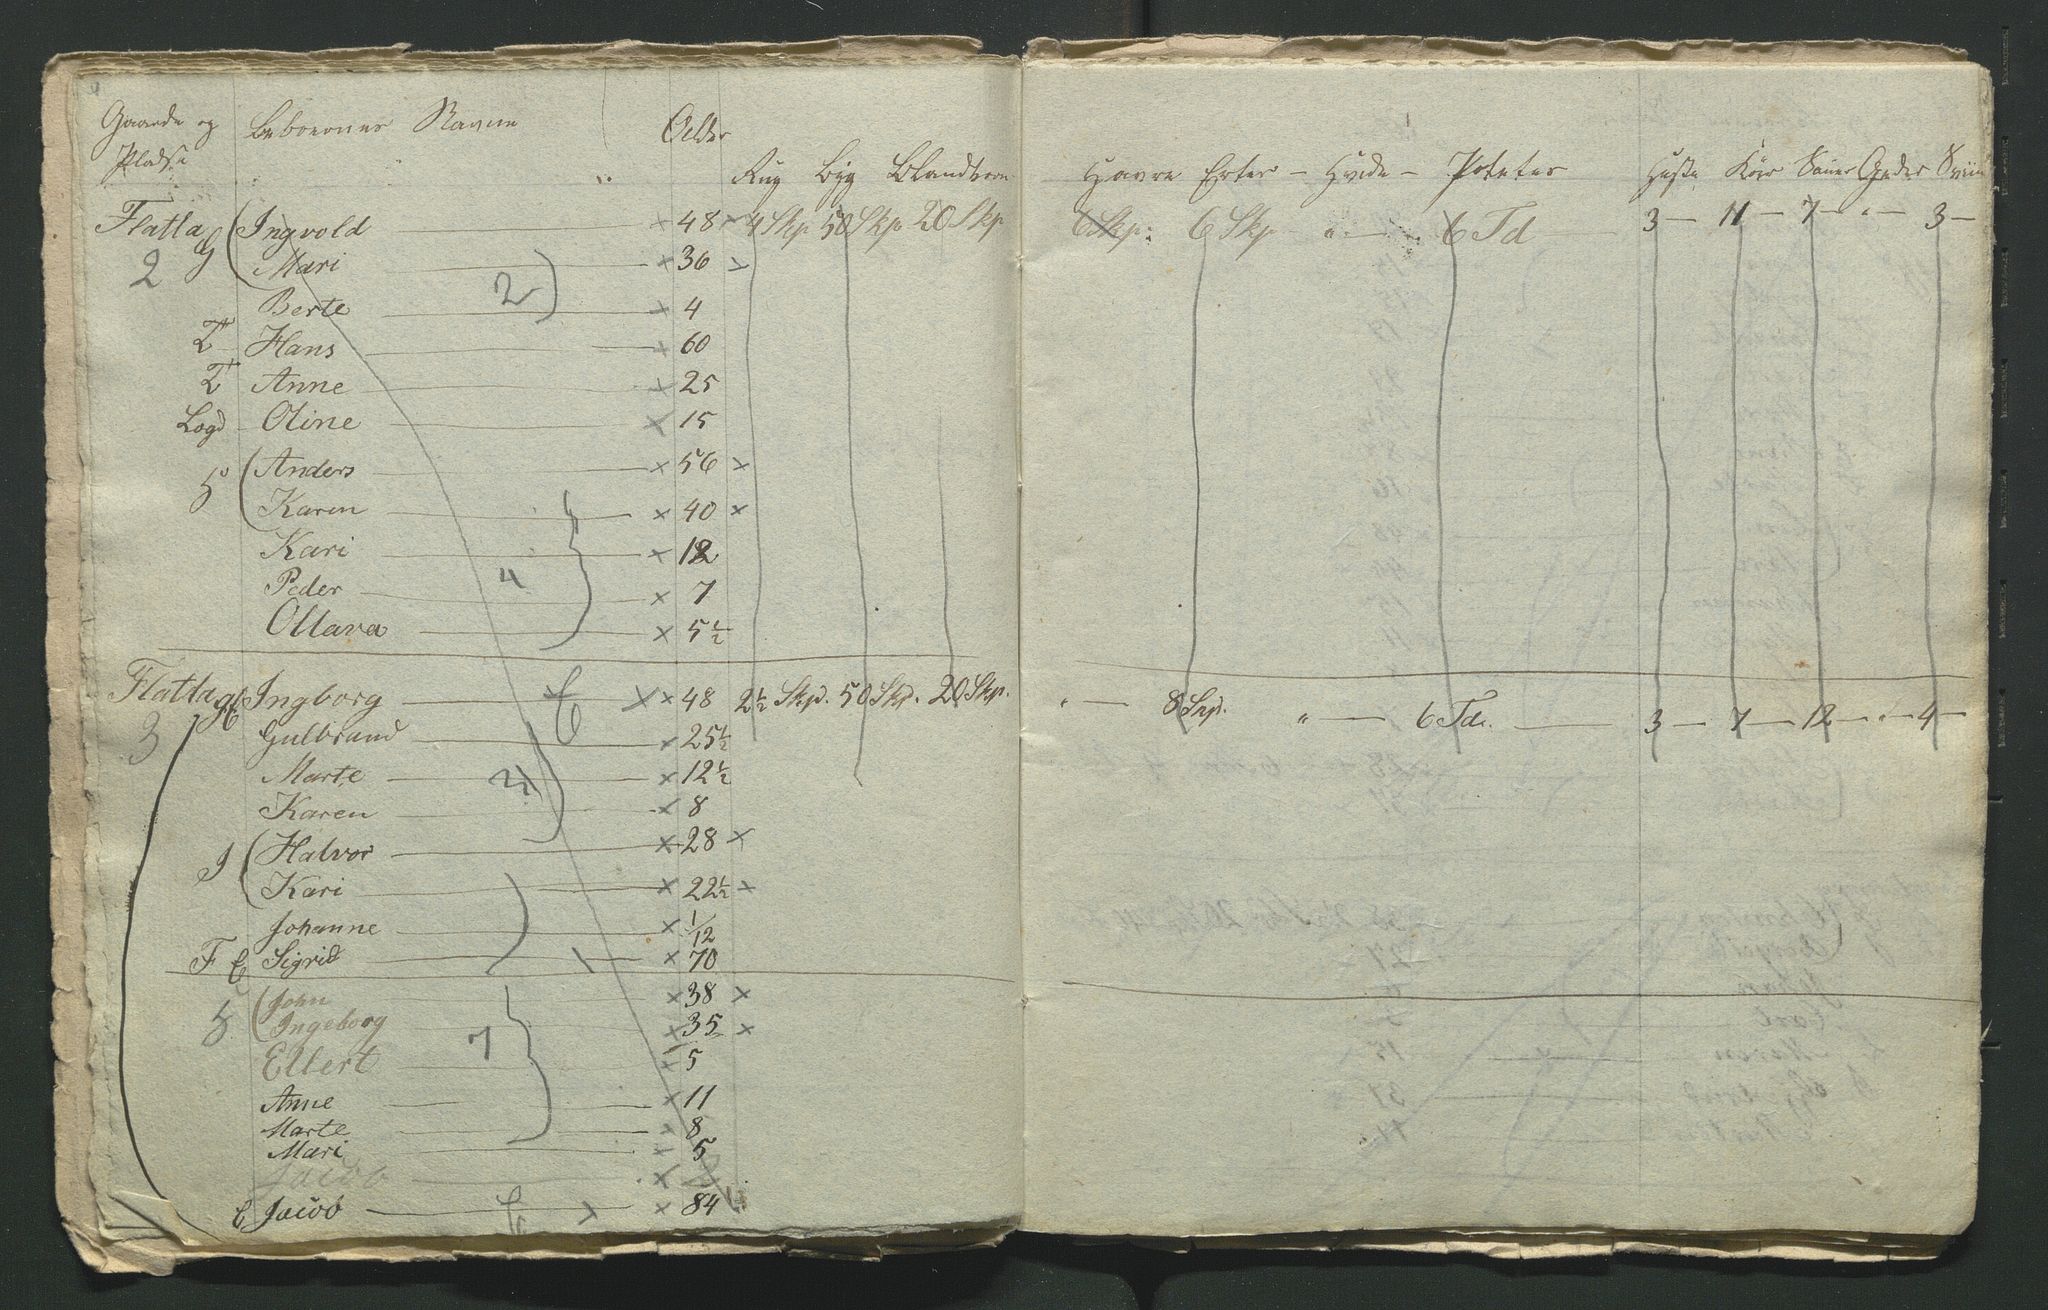 Gaarde og Beboernes Navne Alder
Pladse Rug Byg Blandkorn Havre Erter - Hvede - Poteter Heste Köer Sauer Geder Sviin
Flatla G Ingvold × 48 × 4 Skp 50 Skp 20 Skp 6 Skp: 6 Skp " 6 Td 3 - 11 - 7 - " - 3 -
2 Mari 2 × 36 ×
Berte × 4
T Hans × 60
T Anne × 25
Logd Oline × 15
H Anders × 56 ×
Karen × 40 ×
Kari × 12
Peder 4 × 7
Ollava × 5½
Flatla gE Ingborg E × × 48 2½ Skp. 50 Skp. 20 Skp. " 8 Skp. " 6 Td. 3 - 7 - 12 - " - 4 -
3 Gulbrand × 25½
Marte 2 × 12½
Karen × 8
I Halvor × 28 ×
Kari × 22½ ×
Johanne × 1/12
F E Sigrid × 70
H John × 38 ×
Ingeborg 7 × 35 ×
Ellert × 5
Anne × 11
Marte × 8
Mari × 5
Jacob ×
E Jacob E × × 84